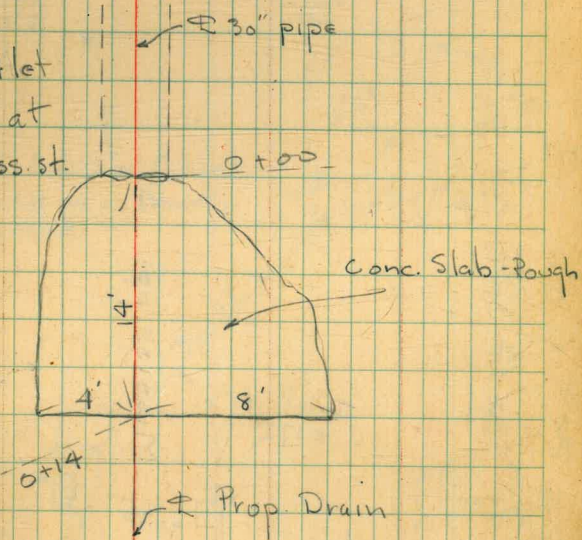 ℄ 30" pipe
let
at
ss. st.
0+00
Conc. Slab-Rough
14'
4' 8'
0+14
℄ Prop. Drain